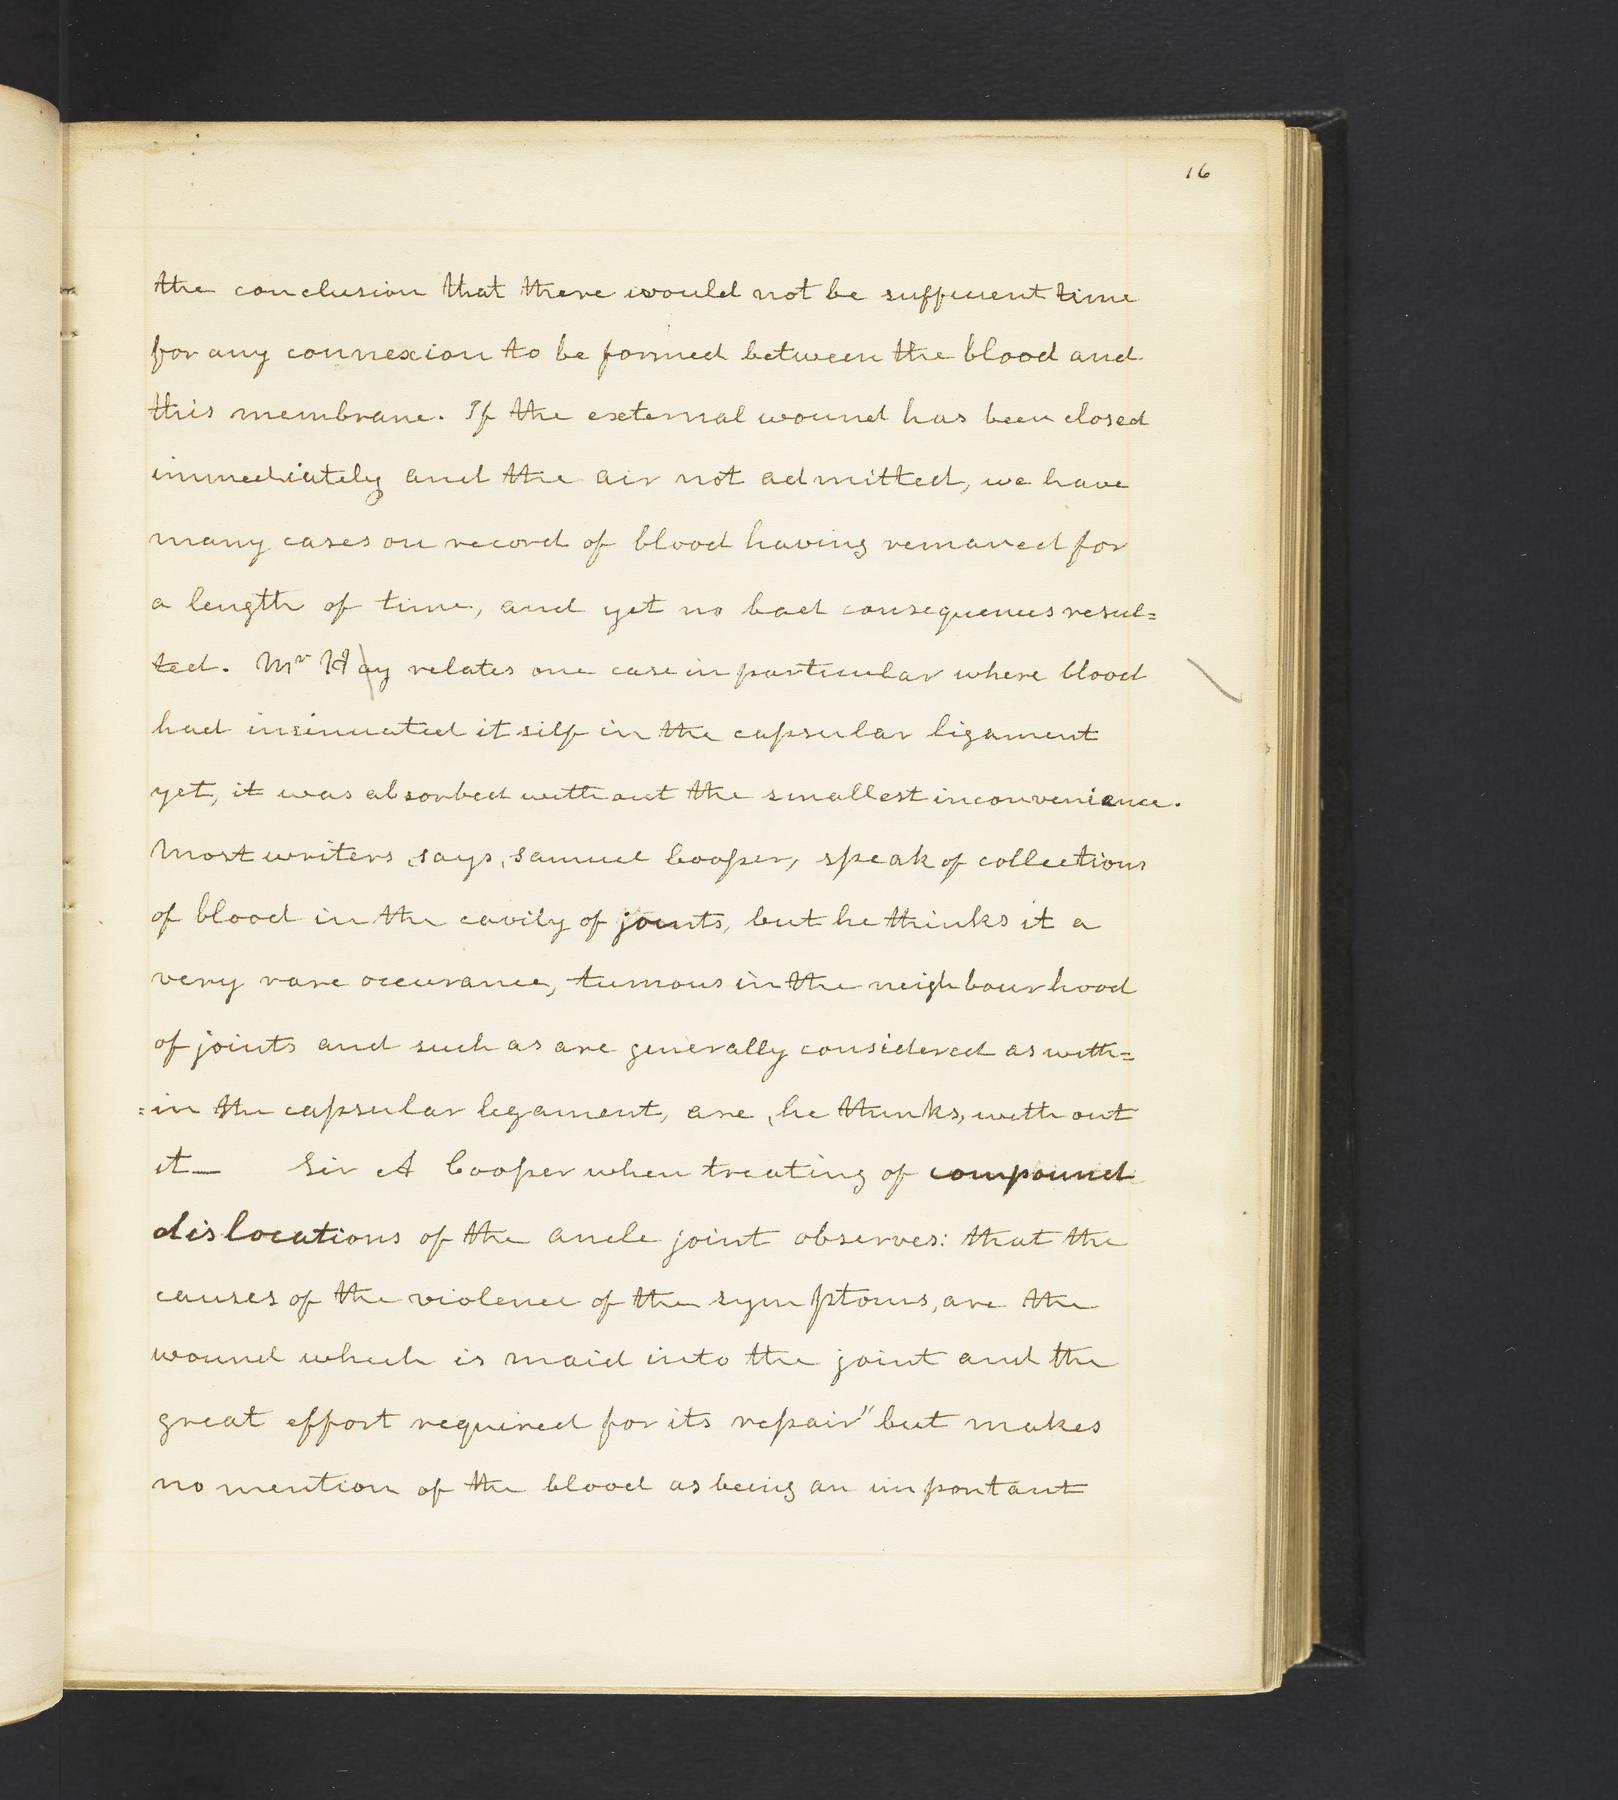 16
the conclusion that there would not be sufficient time
for any connexion to be formed between the blood and
this membrane. If the external wound has been closed
immediately and the air not admitted, we have
many cases on record of blood having remaned for
a length of time, and yet no bad consequences resul=
ted. Mr Hay relates one case in particular where blood
had insinuated it self in the capsular ligament
yet, it was absorbed without the smallest inconveniance.
Most writers, says, Samuel Cooper, speak of collections
of blood in the cavity of joints, but he thinks it a
very rare occurance, tumous in the neighbourhood
of joints and such as are generally considered as with=
=in the capsular legament, are, he thinks, without
it— Sir A Cooper when treating of compound
dislocations of the ancle joint observes: that the
causes of the violence of the symptoms, are the
wound which is maid into the joint and the
great effort required for its repair" but makes
no mention of the blood as being an important